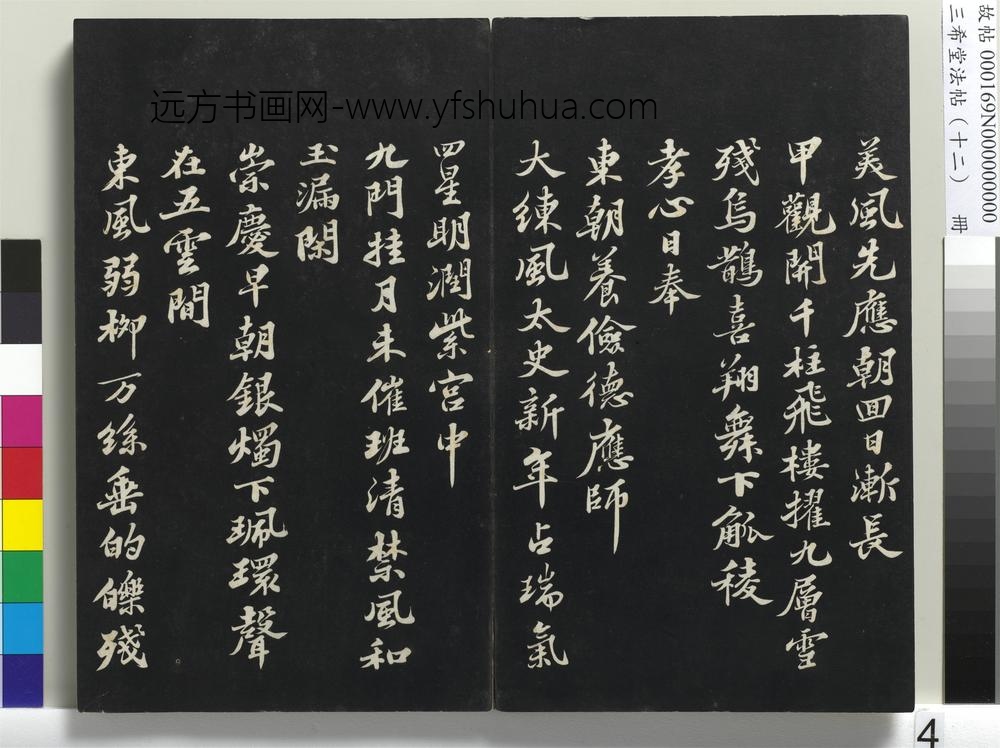 美風先應朝回日漸長
甲觀開千柱飛樓擢九層雪
殘烏鵲喜翔舞下觚稜
孝心日奉
東朝養儉德應師
大練風太史新年占瑞氣
四星明潤紫宮中
九門挂月未催班清禁風和
玉漏閑
崇慶早朝銀燭下珮環聲
在五雲間
東風弱柳万絲垂的皪殘
远方书画网-www.yfshuhua.com
故帖 000169N000000000
三希堂法帖（十二） 冊
4